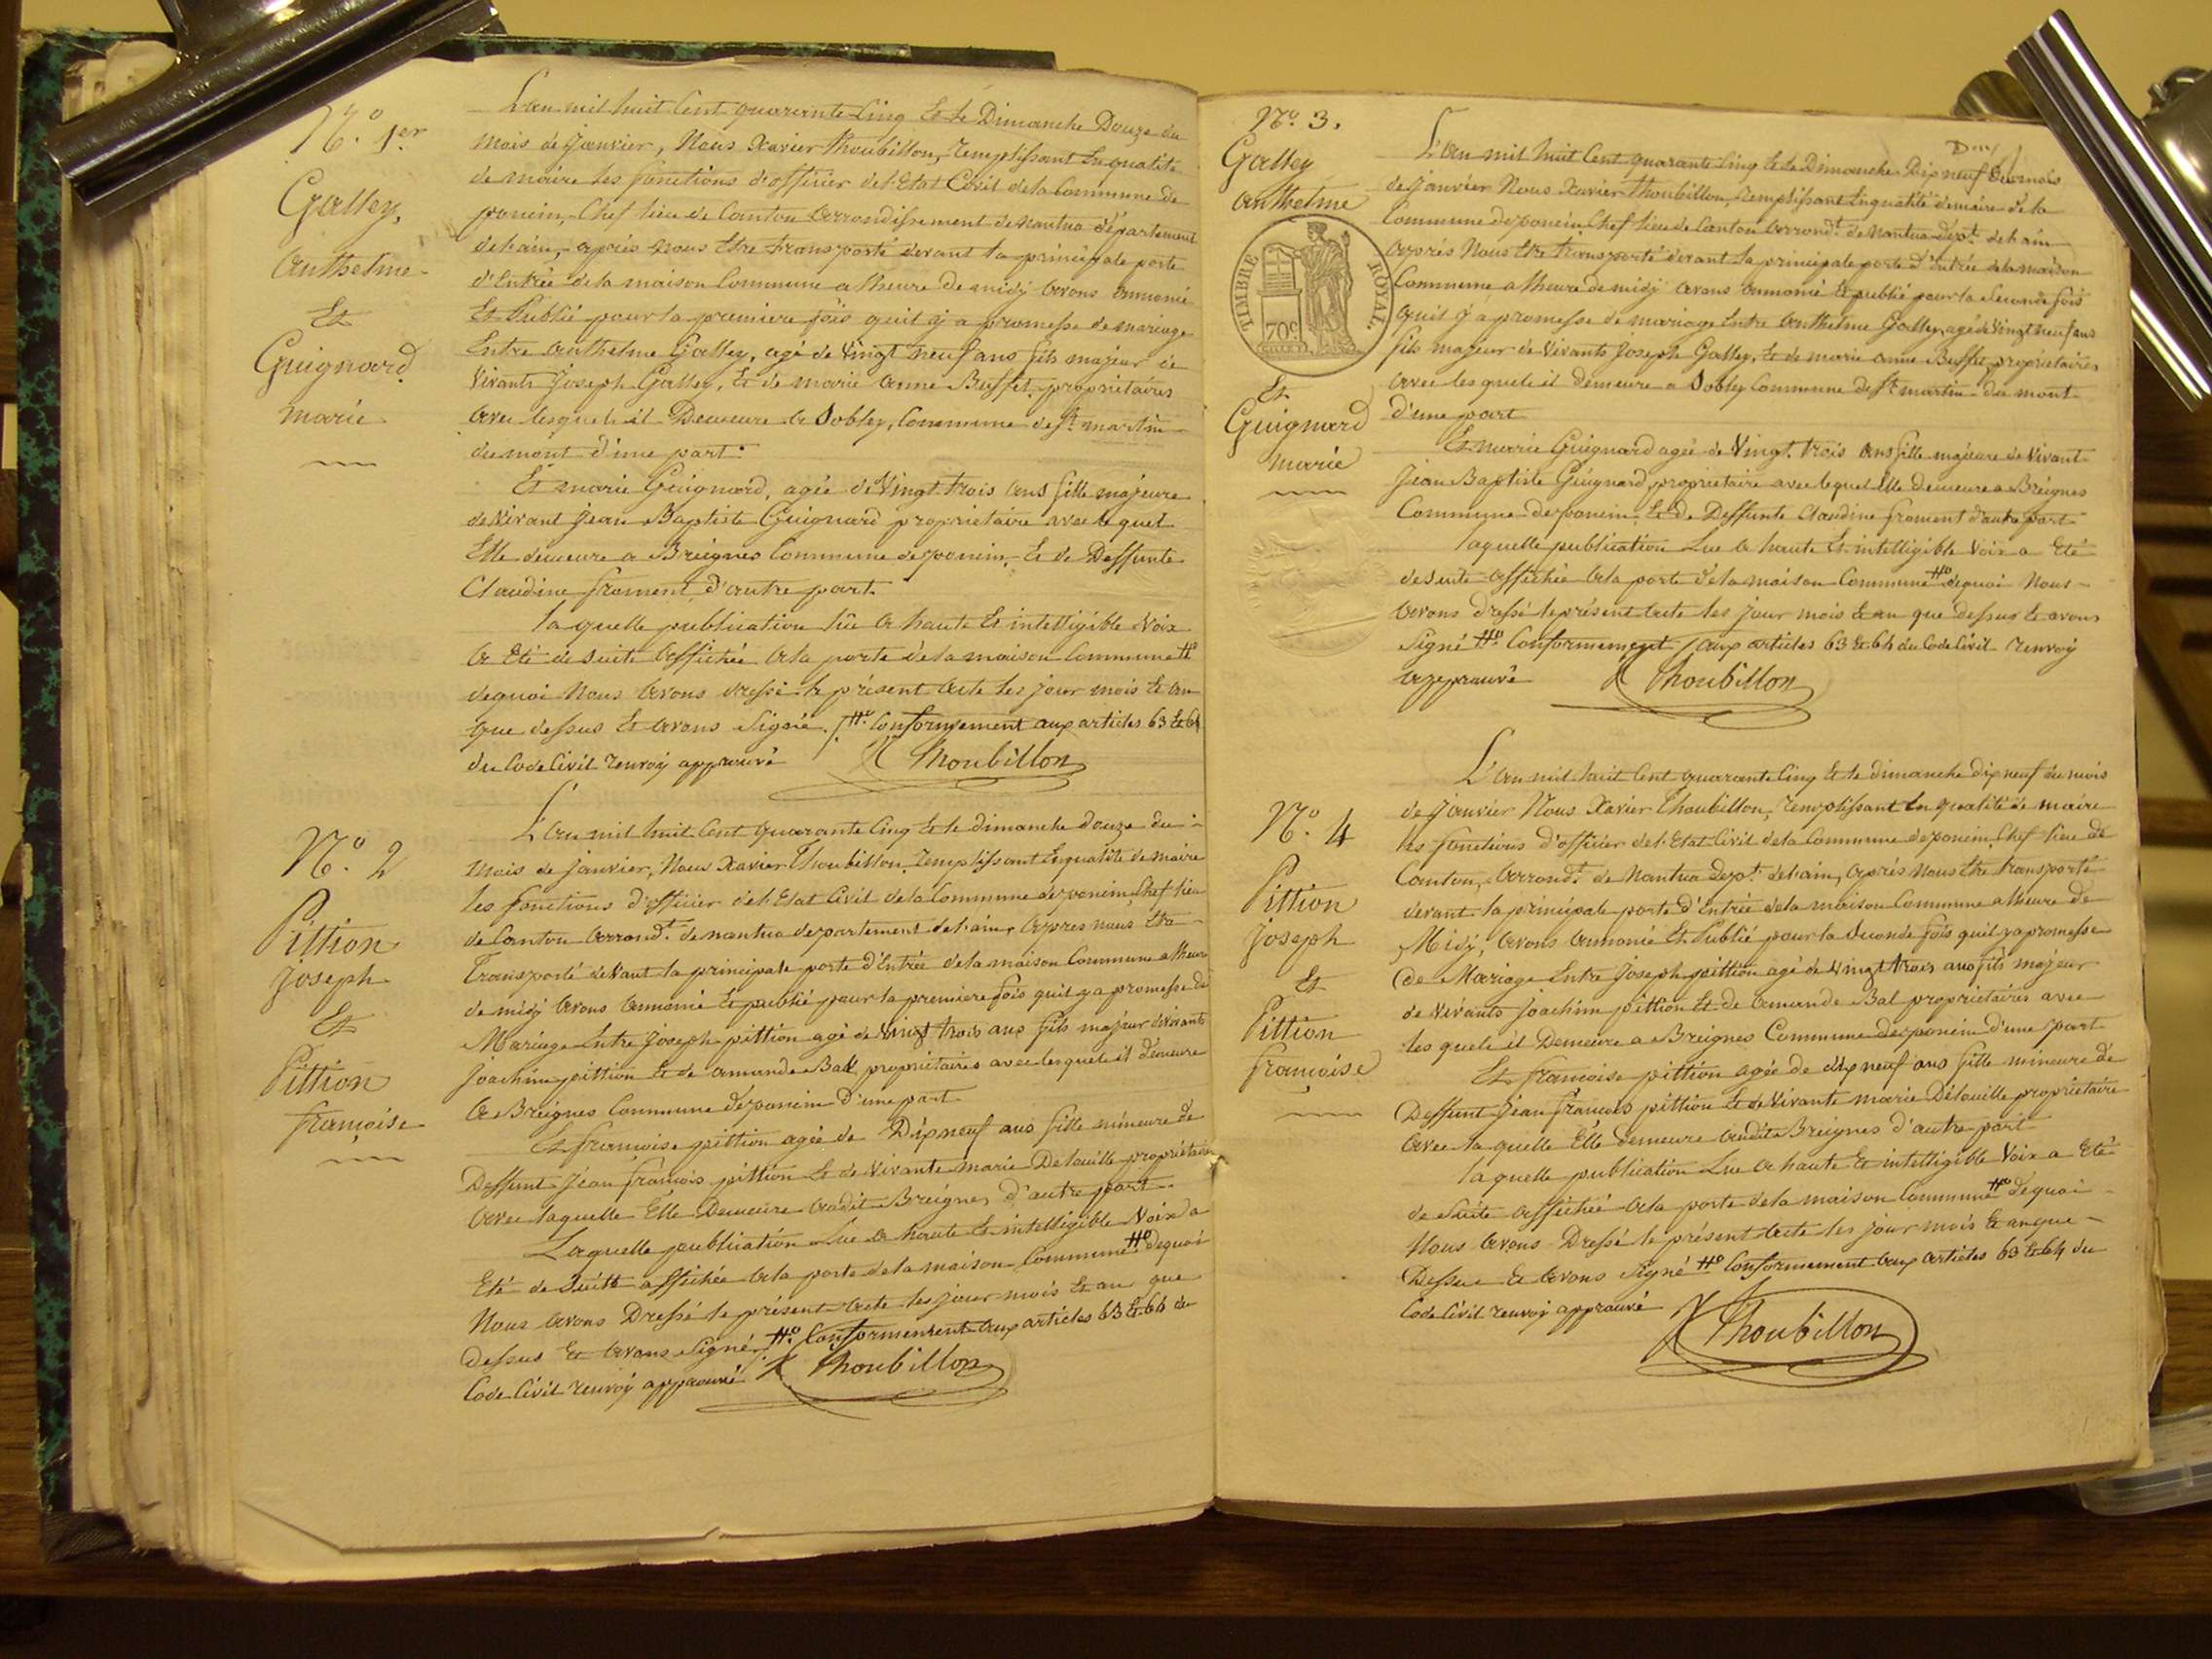 N.o 1er
Galley,
anthelme
Et
Guignard
marie
L'an mil huit Cent quarante Cinq Et Le Dimanche Douze du
mois de Janvier, Nous Xavier Thoubillon, remplissant En qualité
de maire les fonctions d'officier de l'Etat Civil de la Commune de
poncin, Chef lieu de Canton arrondissement de nantua département
de l'ain, après nous Etre transporté devant la principale porte
d'Entrée de la maison Commune a l'heure de midy avons annoncé
Et Publié pour la premiere fois qu'il y a promesse de mariage
Entre anthelme Galley, agé de Vingt neuf ans fils majeur de
Vivants Joseph Galley, Et de marie anne Buffet, propriétaires
avec lesquels il Demeure a Soblay, Commune de St. martin
du mont d'une part.
Et marie Guignard, agée de Vingt trois ans fille majeure
de Vivant Jean Baptiste Guignard propriétaire avec lequel
Elle demeure a Breignes Commune de poncin, Et de Deffunte
Claudine froment d'autre part.
la quelle publication lue a haute Et intelligible Voix
a Eté de suite affichée a la porte de la maison Commune #o
de quoi Nous avons dressé le présent acte les jour mois Et an
que dessus Et avons Signé. / #o Conformément aux articles 63 Et 64
du Code Civil renvoy approuvé X Thoubillon
N.o 2
Pittion
Joseph
Et
Pittion
françoise
L'an mil huit Cent quarante Cinq Et le dimanche douze du
mois de janvier, Nous Xavier Thoubillon, remplissant En qualité de maire
les fonctions d'officier de l'Etat Civil de la Commune de poncin, Chef lieu
de Canton arrondt. de nantua departement de l'ain, apres nous Etre
Transporté devant la principale porte d'Entrée de la maison Commune a l'heure
de midy avons annoncé Et publié pour la premiere fois qu'il y a promesse de
Mariage Entre Joseph pittion agé de Vingt trois ans fils majeur de Vivants
Joachim pittion Et de amande Bal propriétaires avec lesquels il demeure
a Breignes Commune de poncin d'une part
Et françoise pittion agée de Dix neuf ans fille mineure de
Deffunt Jean françois pittion Et de Vivante marie Delouille propriétaire
avec laquelle Elle Demeure audit Breignes d'autre part.
Laquelle publication Lue a haute Et intelligible Voix a
Eté de suite affichée a la porte de la maison Commune #o de quoi
Nous avons Dressé le présent acte les jour mois Et an que
dessus Et avons Signé / #o Conformément aux articles 63 Et 64 du
Code Civil renvoy approuvé X Thoubillon
No. 3.
Galley
anthelme
TIMBRE ROYAL.
70c.
Et
Guignard
marie
L'an mil huit Cent quarante Cinq Et Le Dimanche Dix neuf du mois
de janvier Nous Xavier Thoubillon, remplissant En qualité de maire de la
Commune de poncin, Chef lieu de Canton arrondt. de nantua dept. de l'ain
après Nous Etre transporté devant la principale porte d'Entrée de la maison
Commune a l'heure de midy avons annoncé Et publié pour la Seconde fois
qu'il y a promesse de mariage Entre anthelme Galley, agé de Vingt neuf ans
fils majeur de Vivants Joseph Galley, Et de marie anne Buffet, propriétaires
avec lesquels il demeure a Soblay Commune de St. martin du mont
d'une part
Et marie Guignard agée de Vingt trois ans fille majeure de Vivant
Jean Baptiste Guignard, propriétaire avec lequel Elle demeure a Breignes
Commune de poncin, Et de Deffunte Claudine froment d'autre part
laquelle publication Lue a haute Et intelligible Voix a Eté
de suite affichée a la porte de la maison Commune #o de quoi Nous
avons dressé le présent acte les jour mois Et an que dessus Et avons
Signé #o Conformément / aux articles 63 Et 64 du Code Civil renvoy
approuvé X Thoubillon
No. 4
Pittion
Joseph
Et
Pittion
françoise
L'an mil huit Cent quarante Cinq Et le dimanche dix neuf du mois
de Janvier Nous Xavier Thoubillon, remplissant En qualité de maire
les fonctions d'officier de l'Etat Civil de la Commune de poncin, Chef lieu de
Canton, arrondt. de Nantua Dept. de l'ain, après nous Etre transporté
devant la principale porte d'Entrée de la maison Commune a l'heure de
Midy, avons annoncé Et Publié pour la Seconde fois qu'il y a promesse
de Mariage Entre Joseph pittion agé de Vingt trois ans fils majeur
de Vivants Joachim pittion Et de amande Bal propriétaires avec
les quels il Demeure a Breignes Commune de poncin d'une part
Et françoise pittion agée de dix neuf ans fille mineure de
Deffunt Jean françois pittion Et de Vivante marie Delouille propriétaire
avec la quelle Elle demeure audit Breignes d'autre part
laquelle publication Lue a haute Et intelligible Voix a Eté
de Suite affichée a la porte de la maison Commune #o de quoi
Nous avons Dressé le présent acte les jour mois Et an que
Dessus Et avons Signé #o Conformément aux articles 63 Et 64 du
Code Civil renvoy approuvé X Thoubillon